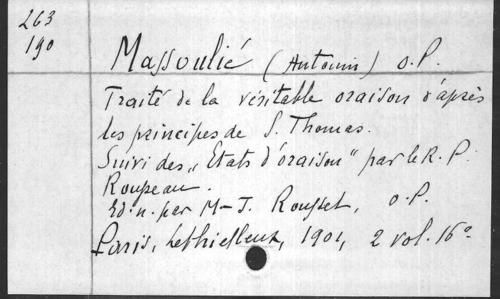 263
190
Massoulié (Antonin) O.P.
Traité de la véritable oraison d'après
les principes de S. Thomas.
Suivi des „Etats d'oraison" par le R. P.
Rousseau.
Ed. n. par M-J. Rousset, O.P.
Paris, Lethielleux, 1901, 2 vol. 16°